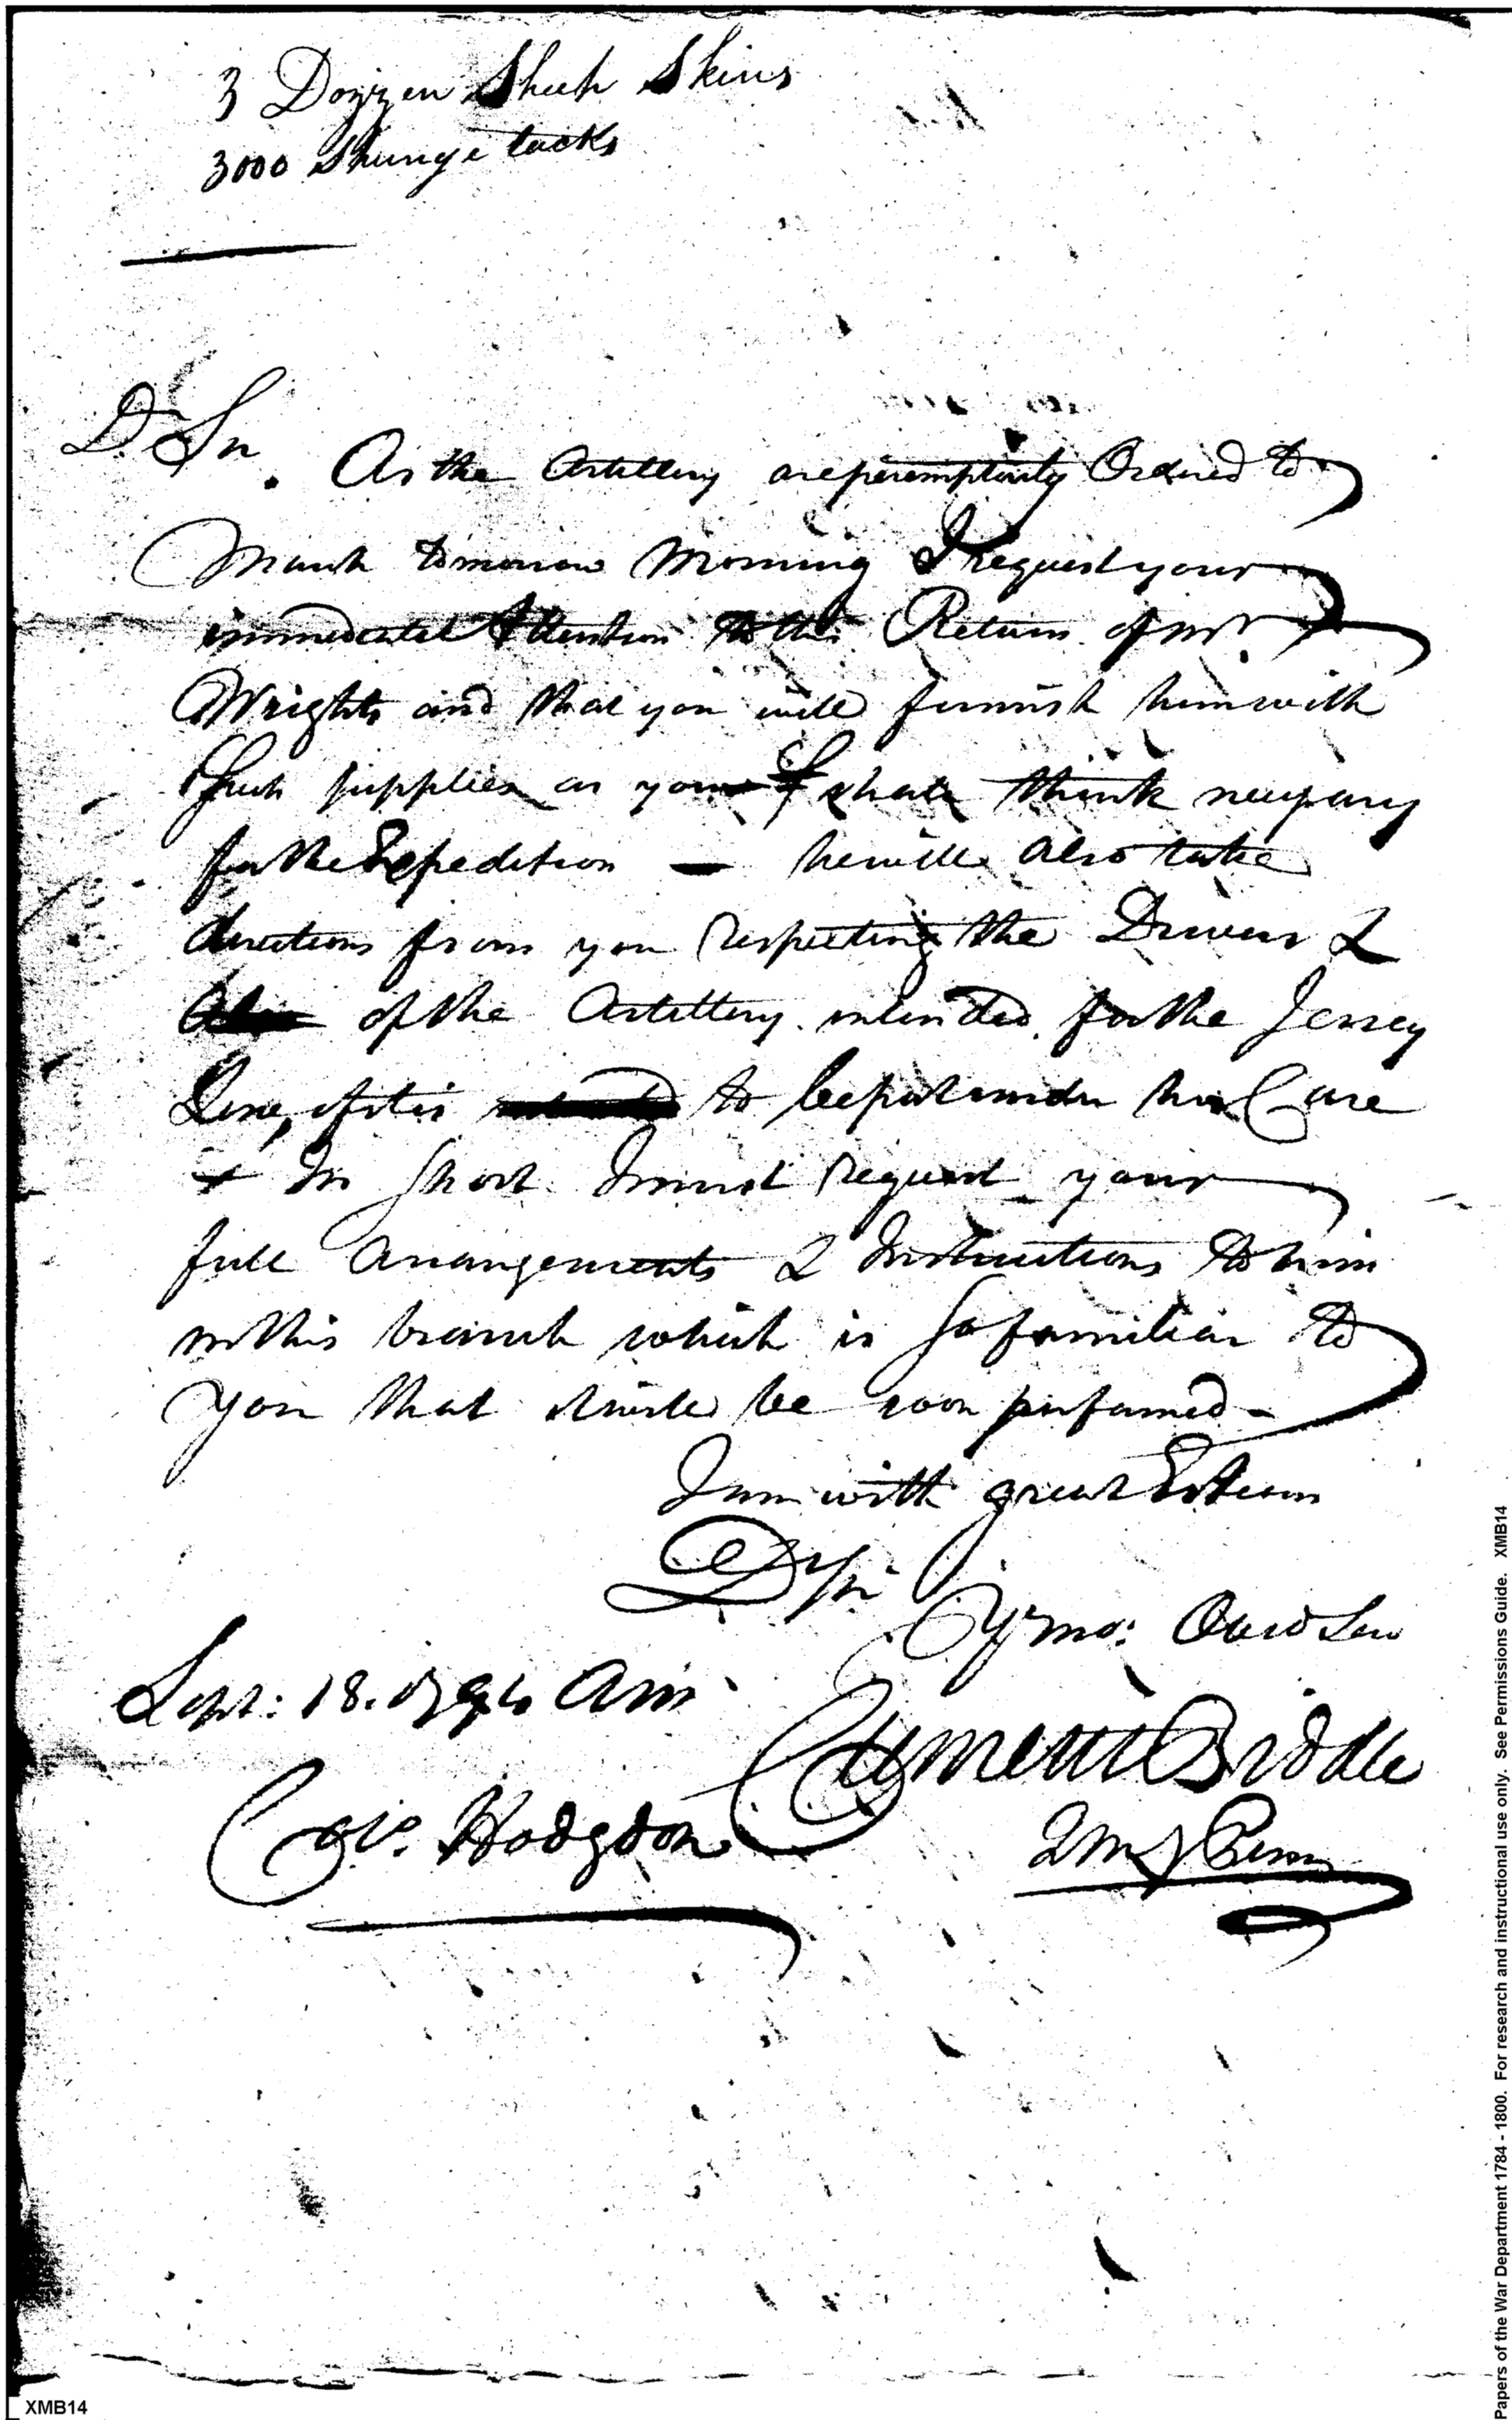 3 Dozzen Sheep Skins
3000 Spunge tacks
Dr Sir. As the Artillery are peremptorily Ordered to
March tomorrow Morning I request your
immediate Attention to this Return of Mr
Wrights and that you will furnish him with
Such supplies as you shall think necessary
for the Expedition — he will also take
directions from you respecting the Drivers &
of the Artillery intended for the Jersey
Line, if it is to be put under his Care
& In short I must request your
full Arrangements & Instructions to him
in this branch which is so familiar to
you that it will be soon performed -
I am with great Esteem
D Sir
Yr mo: Obed Ser
Sept: 18. 1794 Am
Clement Biddle
Colo. Hodgdon
QM G Penn
XMB14
Papers of the War Department 1784 - 1800. For research and instructional use only. See Permissions Guide. XMB14